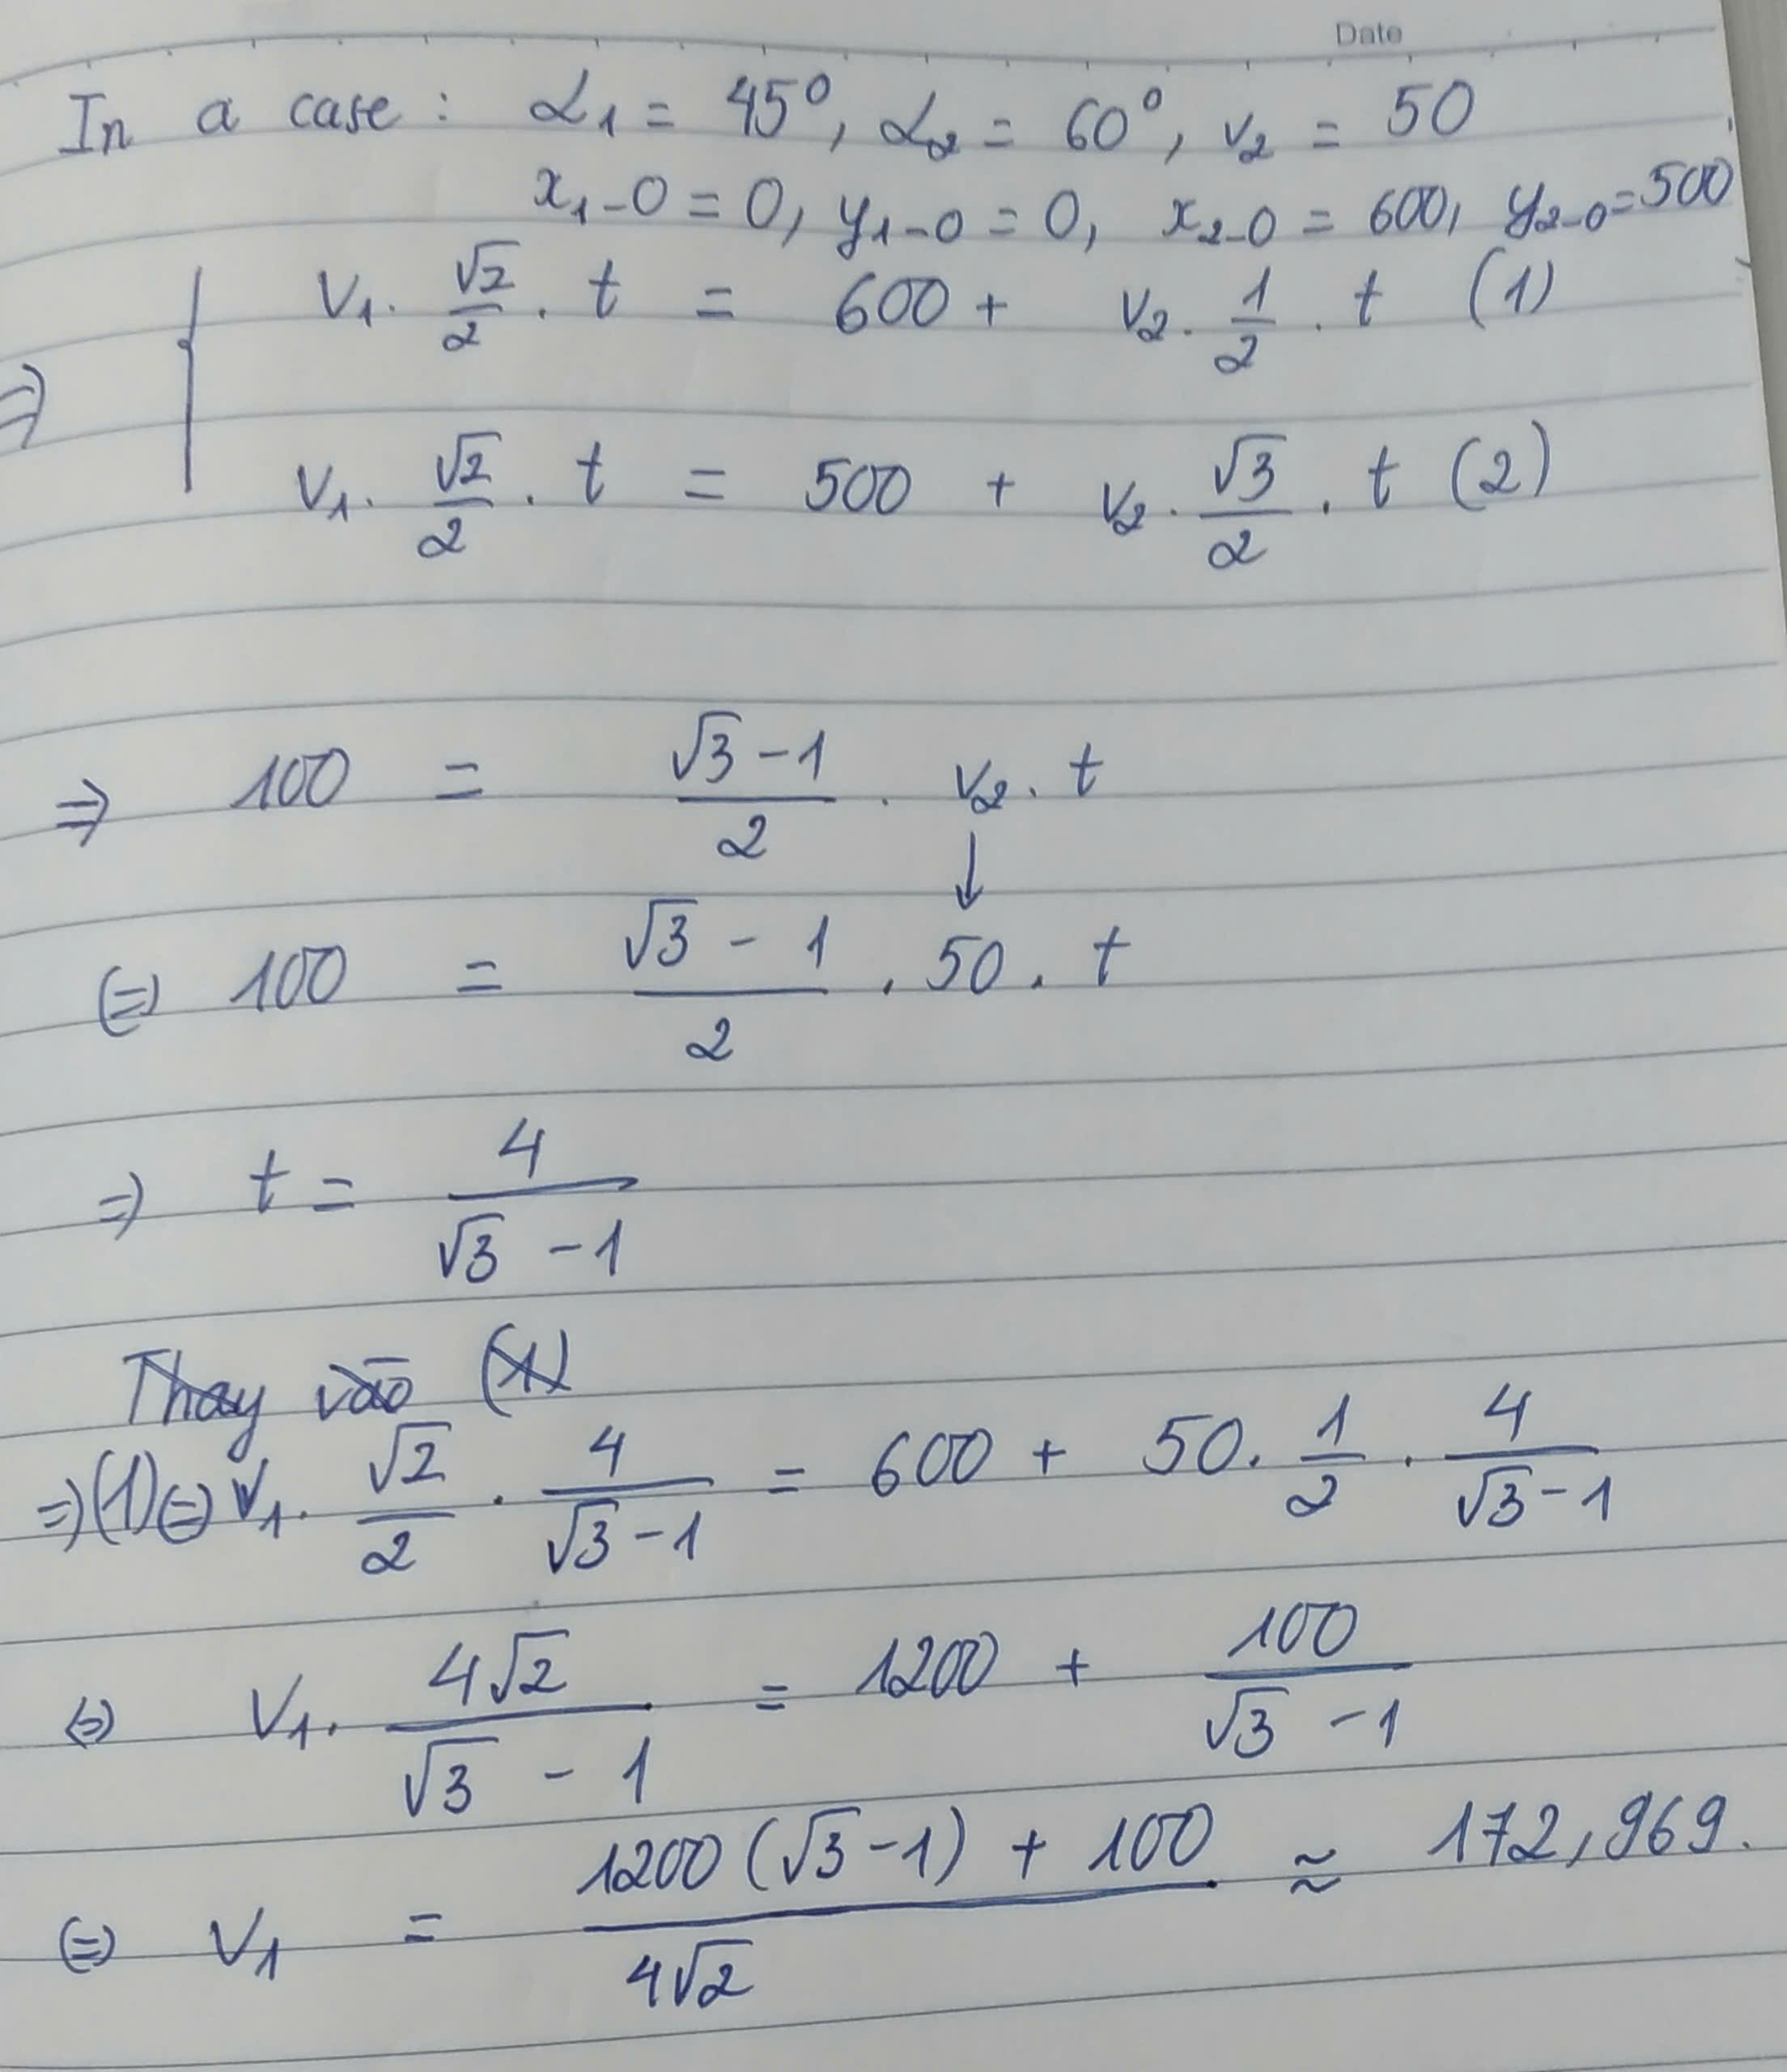 Date
In a case : α₁ = 45°, α₂ = 60°, v₂ = 50
x₁₋0 = 0, y₁₋0 = 0, x₂₋0 = 600, y₂₋0 = 500
v₁ . √2/2 . t = 600 + v₂ . 1/2 . t (1)
=> {
v₁ . √2/2 . t = 500 + v₂ . √3/2 . t (2)
=> 100 = (√3 - 1)/2 . v₂ . t
↓
(=) 100 = (√3 - 1)/2 . 50 . t
=) t = 4/(√3 - 1)
Thay vào (1)
=) (1) (=) v₁ . √2/2 . 4/(√3 - 1) = 600 + 50 . 1/2 . 4/(√3 - 1)
(=) v₁ . 4√2/(√3 - 1) = 1200 + 100/(√3 - 1)
(=) v₁ = (1200 (√3 - 1) + 100)/(4√2) ≈ 172,969.